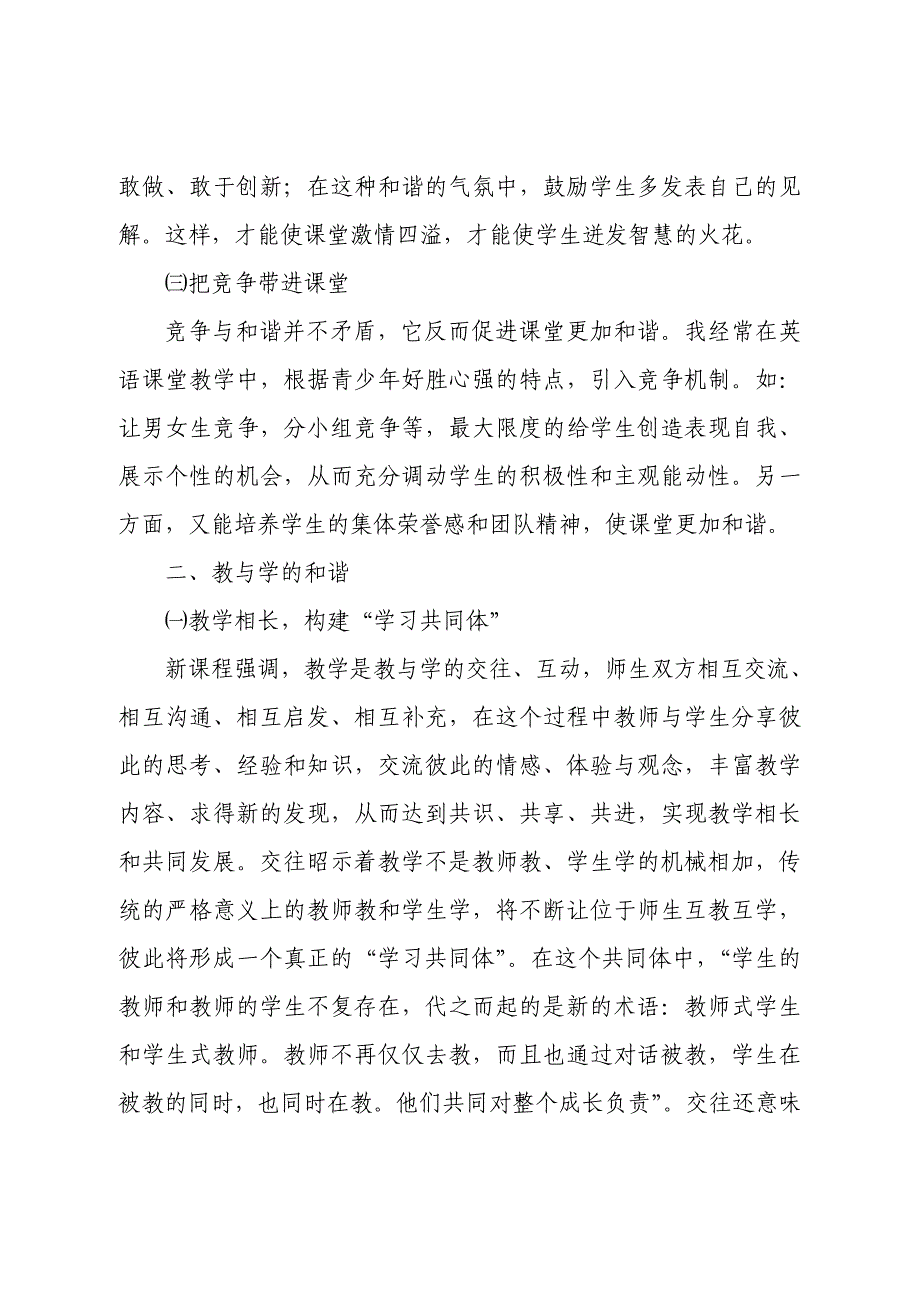 敢做、敢于创新；在这种和谐的气氛中，鼓励学生多发表自己的见
解。这样，才能使课堂激情四溢，才能使学生迸发智慧的火花。
㈢把竞争带进课堂
竞争与和谐并不矛盾，它反而促进课堂更加和谐。我经常在英
语课堂教学中，根据青少年好胜心强的特点，引入竞争机制。如：
让男女生竞争，分小组竞争等，最大限度的给学生创造表现自我、
展示个性的机会，从而充分调动学生的积极性和主观能动性。另一
方面，又能培养学生的集体荣誉感和团队精神，使课堂更加和谐。
二、教与学的和谐
㈠教学相长，构建“学习共同体”
新课程强调，教学是教与学的交往、互动，师生双方相互交流、
相互沟通、相互启发、相互补充，在这个过程中教师与学生分享彼
此的思考、经验和知识，交流彼此的情感、体验与观念，丰富教学
内容、求得新的发现，从而达到共识、共享、共进，实现教学相长
和共同发展。交往昭示着教学不是教师教、学生学的机械相加，传
统的严格意义上的教师教和学生学，将不断让位于师生互教互学，
彼此将形成一个真正的“学习共同体”。在这个共同体中，“学生的
教师和教师的学生不复存在，代之而起的是新的术语：教师式学生
和学生式教师。教师不再仅仅去教，而且也通过对话被教，学生在
被教的同时，也同时在教。他们共同对整个成长负责”。交往还意味